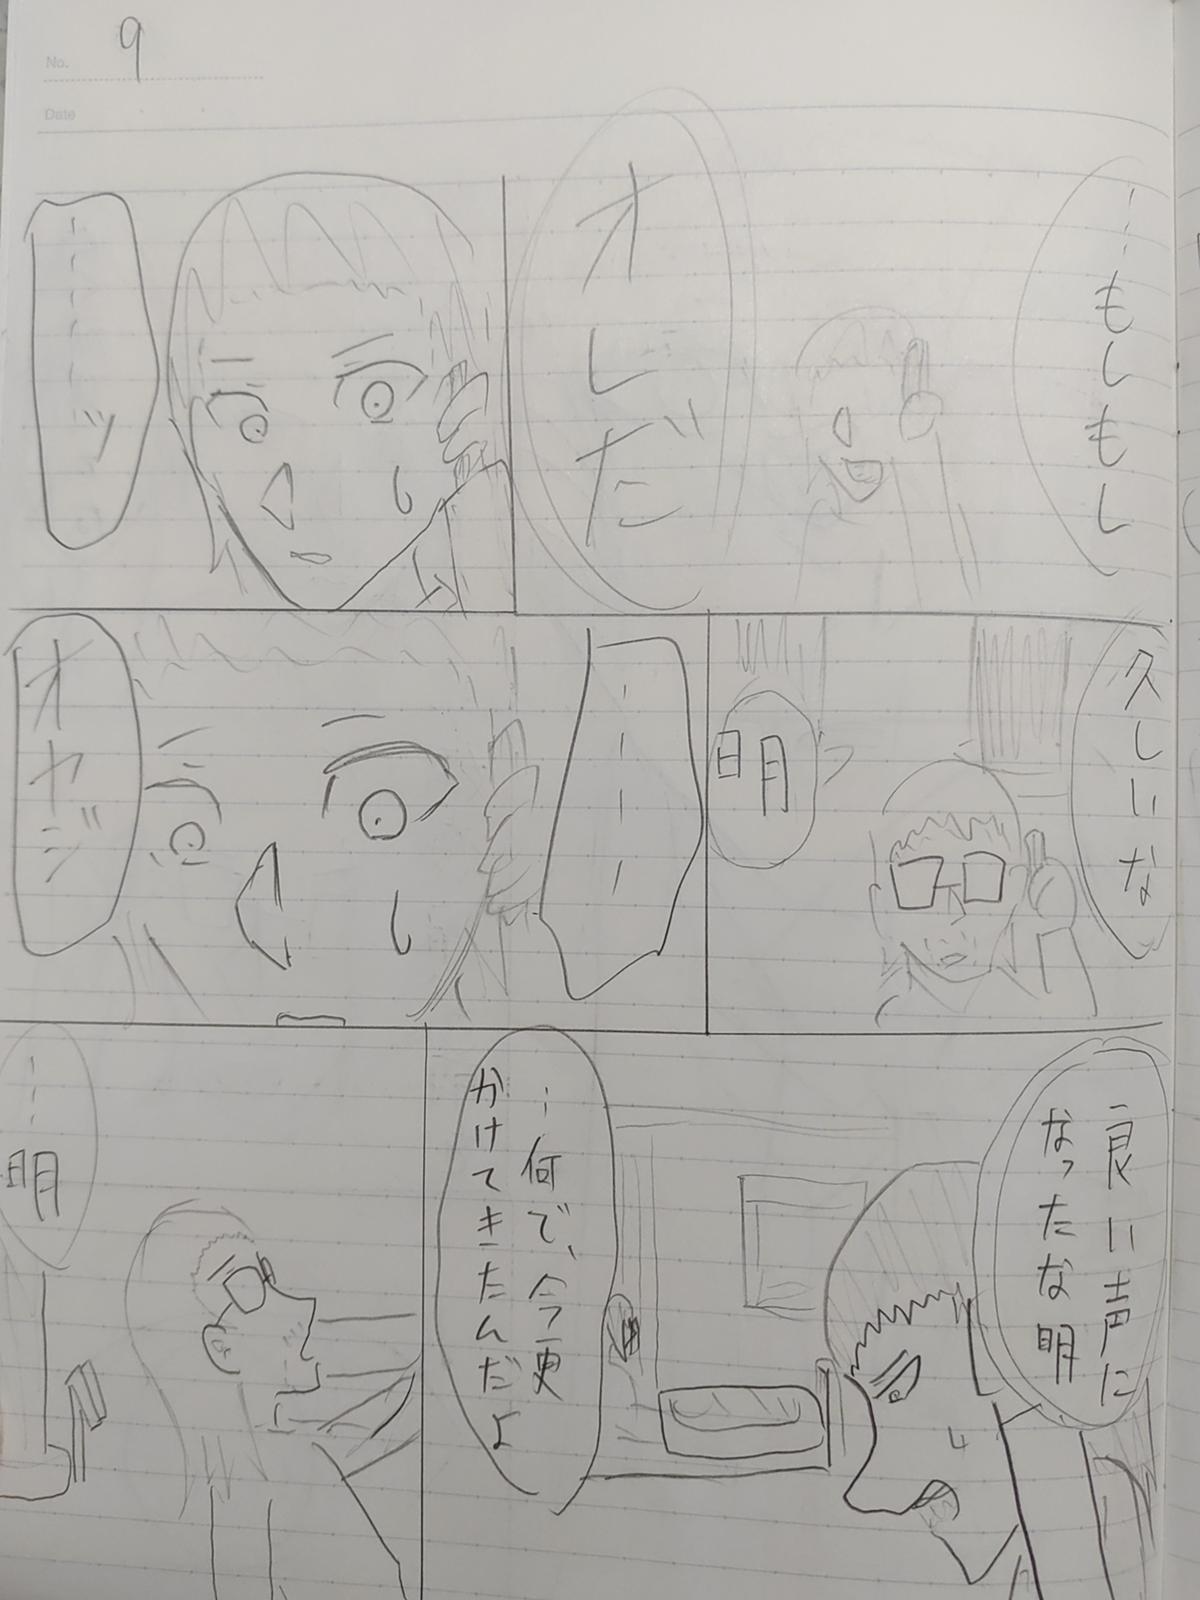 No. 9
Date
……もしもし
オレだ
……ッ
久しいな
明
………
オヤジ
良い声に
なったな明
…何で、今更
かけてきたんだよ
……明